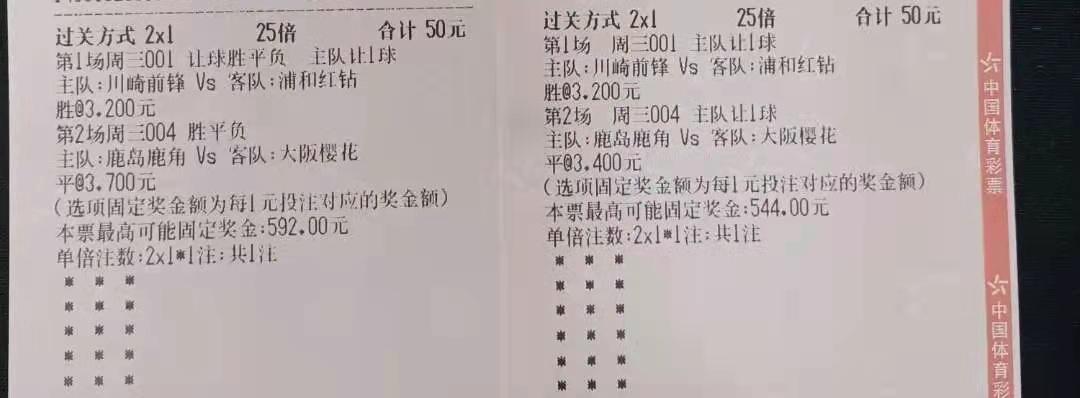 过关方式 2x1 25倍 合计 50元
第1场周三001 让球胜平负 主队让1球
主队:川崎前锋 Vs 客队:浦和红钻
胜@3.200元
第2场周三004 胜平负
主队:鹿岛鹿角 Vs 客队:大阪樱花
平@3.700元
(选项固定奖金额为每1元投注对应的奖金额)
本票最高可能固定奖金:592.00元
单倍注数:2x1*1注:共1注
* * *
* * *
* * *
* * *
* * *
过关方式 2x1 25倍 合计 50元
第1场 周三001 主队让1球
主队:川崎前锋 Vs 客队:浦和红钻
胜@3.200元
第2场 周三004 主队让1球
主队:鹿岛鹿角 Vs 客队:大阪樱花
平@3.400元
(选项固定奖金额为每1元投注对应的奖金额)
本票最高可能固定奖金:544.00元
单倍注数:2x1*1注:共1注
* * *
* * *
* * *
* * *
* * *
* * *
中国体育彩票
中国体育彩